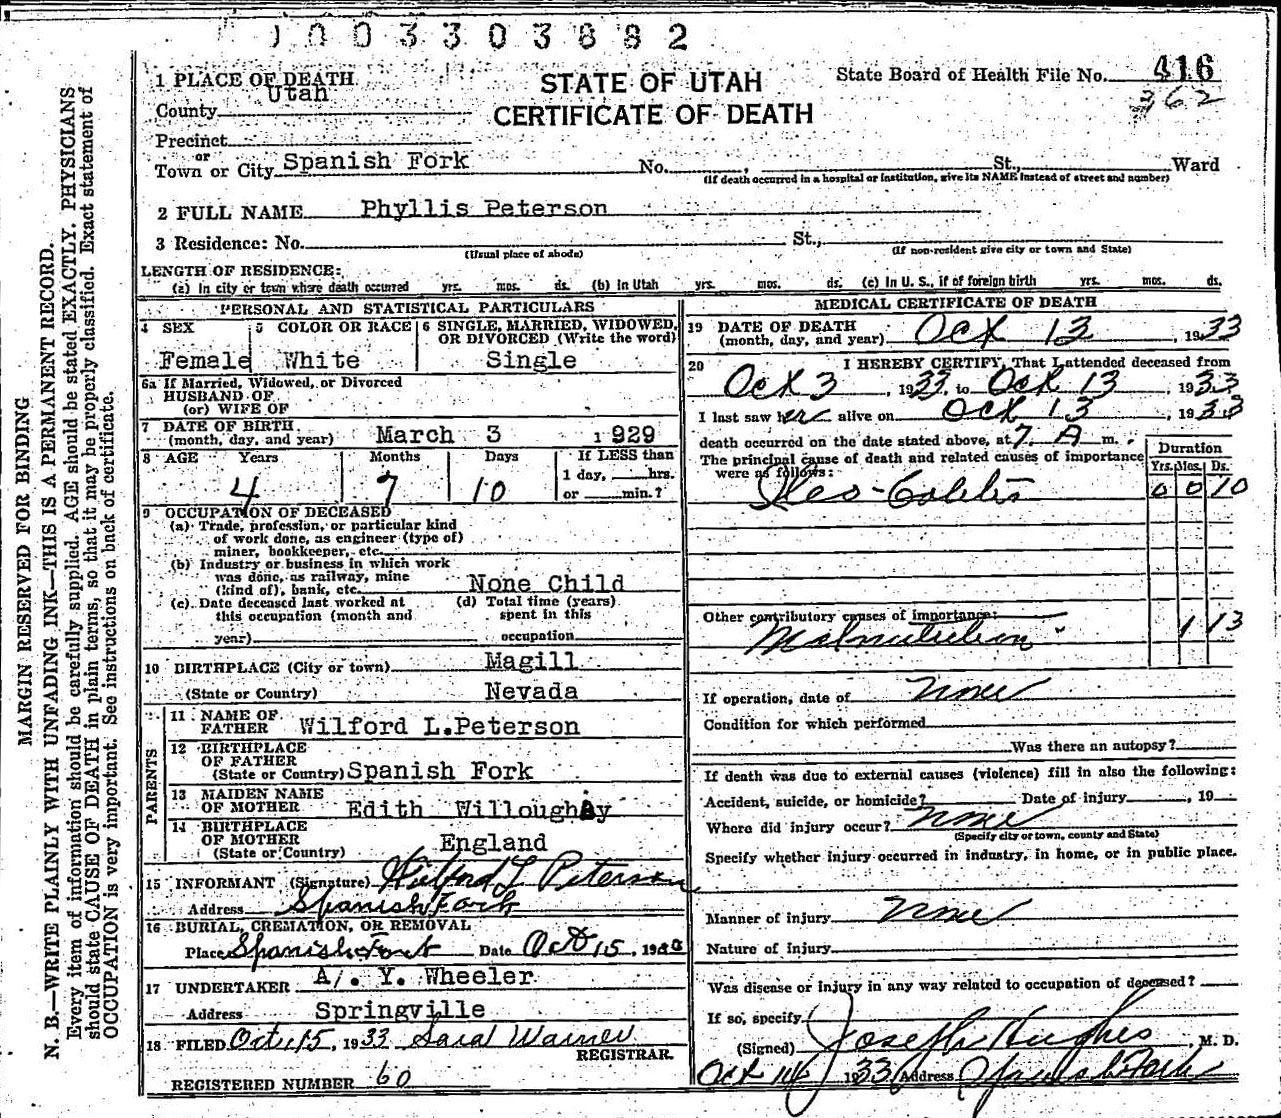 1003303882
STATE OF UTAH
CERTIFICATE OF DEATH
State Board of Health File No. 416
362
1 PLACE OF DEATH
Utah
County
Precinct
or
Town or City Spanish Fork No. , St., Ward
(If death occurred in a hospital or institution, give its NAME instead of street and number)
2 FULL NAME Phyllis Peterson
3 Residence: No. St.,
(Usual place of abode) (If non-resident give city or town and State)
LENGTH OF RESIDENCE:
(a) In city or town where death occurred yrs. mos. ds. (b) In Utah yrs. mos. ds. (c) In U. S., if of foreign birth yrs. mos. ds.
PERSONAL AND STATISTICAL PARTICULARS
4 SEX 5 COLOR OR RACE 6 SINGLE, MARRIED, WIDOWED, OR DIVORCED (Write the word)
Female White Single
6a If Married, Widowed, or Divorced
HUSBAND OF
(or) WIFE OF
7 DATE OF BIRTH
(month, day, and year) March 3 1929
8 AGE Years Months Days If LESS than
1 day, hrs.
4 7 10 or min.?
9 OCCUPATION OF DECEASED
(a) Trade, profession, or particular kind
of work done, as engineer (type of)
miner, bookkeeper, etc.
(b) Industry or business in which work
was done, as railway, mine
(kind of), bank, etc. None Child
(c) Date deceased last worked at (d) Total time (years)
this occupation (month and spent in this
year) occupation
10 BIRTHPLACE (City or town) Magill
(State or Country) Nevada
PARENTS
11 NAME OF
FATHER Wilford L.Peterson
12 BIRTHPLACE
OF FATHER
(State or Country) Spanish Fork
13 MAIDEN NAME
OF MOTHER Edith Willoughby
14 BIRTHPLACE
OF MOTHER
(State or Country) England
15 INFORMANT (Signature) Wilford L Peterson
Address Spanish Fork
16 BURIAL, CREMATION, OR REMOVAL
Place Spanish Fork Date Oct 15, 19
17 UNDERTAKER A. Y. Wheeler
Address Springville
18 FILED Oct 15, 1933 Sara Warner
REGISTRAR.
REGISTERED NUMBER 60
MEDICAL CERTIFICATE OF DEATH
19 DATE OF DEATH
(month, day, and year) Oct 13, 1933
20 I HEREBY CERTIFY, That I attended deceased from
Oct 3, 1933, to Oct 13, 1933
I last saw her alive on Oct 13, 1933
death occurred on the date stated above, at 7 A m.
The principal cause of death and related causes of importance
were as follows:
Duration
Yrs. Mos. Ds.
Ileo-Colitis 0 0 10
Other contributory causes of importance:
Malnutrition 1 13
If operation, date of None
Condition for which performed
Was there an autopsy?
If death was due to external causes (violence) fill in also the following:
Accident, suicide, or homicide? Date of injury , 19
Where did injury occur? None
(Specify city or town, county and State)
Specify whether injury occurred in industry, in home, or in public place.
Manner of injury None
Nature of injury
Was disease or injury in any way related to occupation of deceased?
If so, specify
(Signed) Joseph Hughes, M. D.
Oct 14 1933 Address Spanish Fork
MARGIN RESERVED FOR BINDING
N. B.—WRITE PLAINLY WITH UNFADING INK—THIS IS A PERMANENT RECORD.
Every item of information should be carefully supplied. AGE should be stated EXACTLY. PHYSICIANS
should state CAUSE OF DEATH in plain terms, so that it may be properly classified. Exact statement of
OCCUPATION is very important. See instructions on back of certificate.